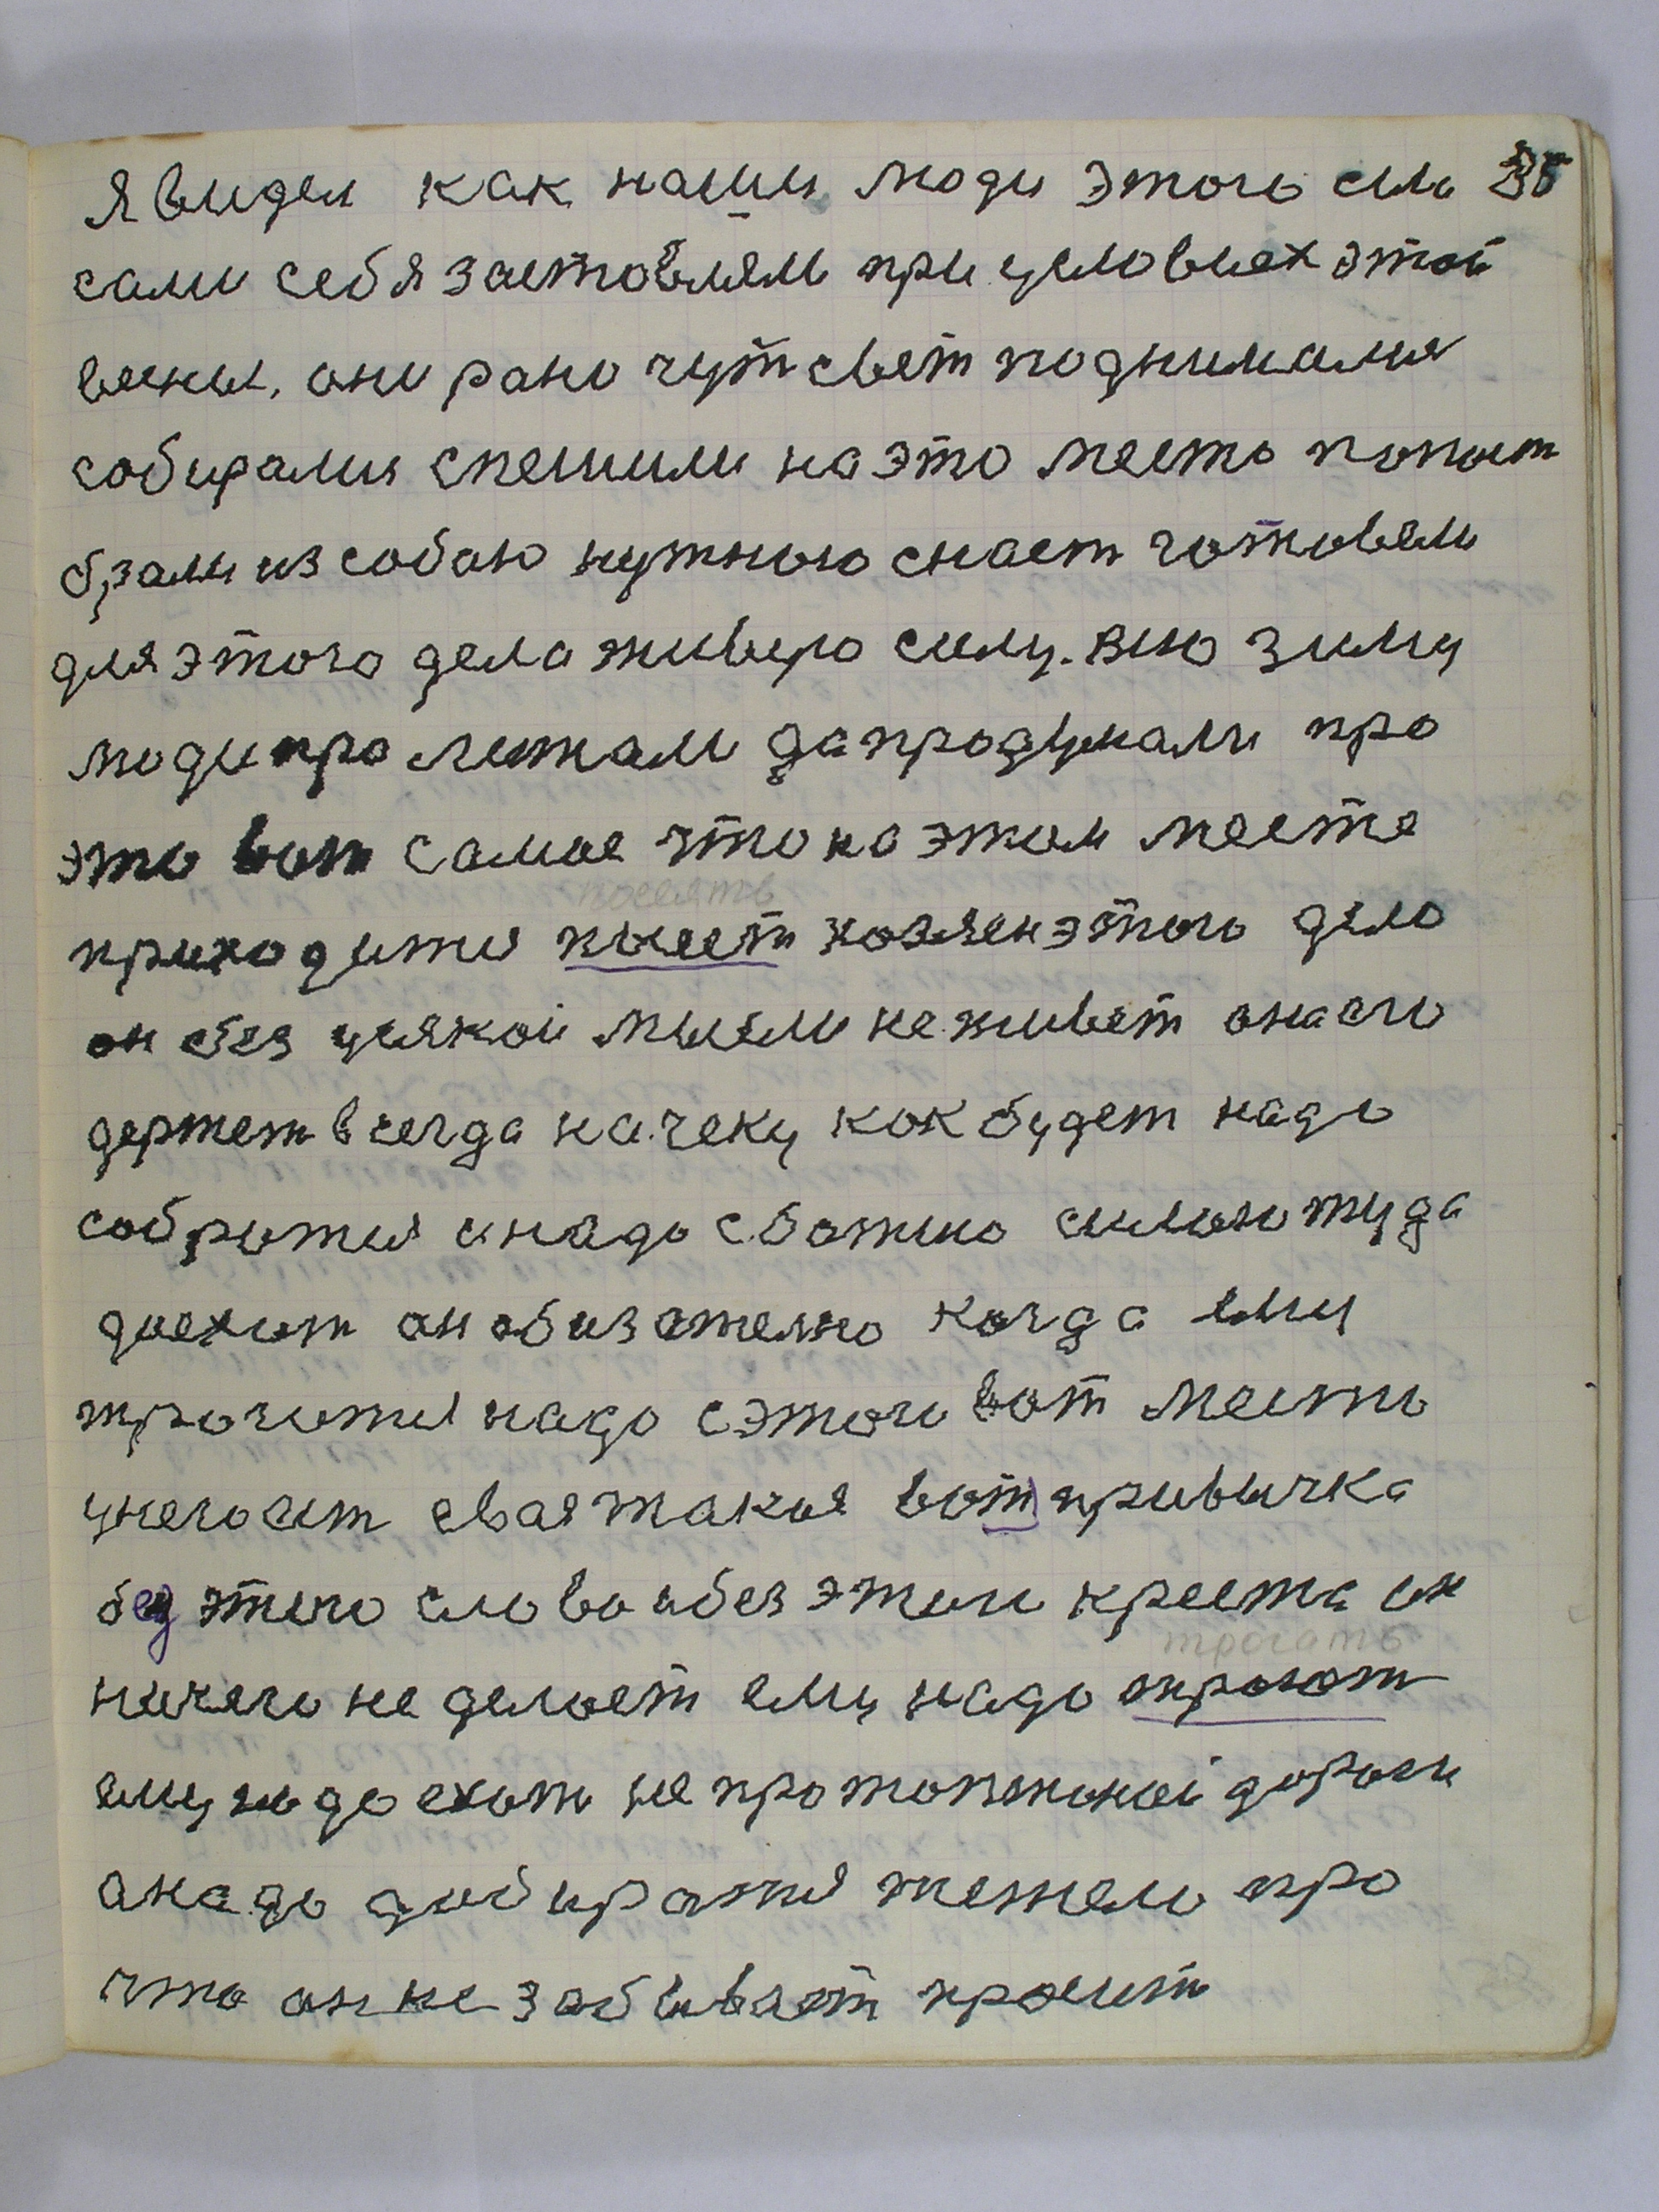 Я видел как наши люди этого села 35
сами себя заставляли при условиях этой
весны. они рано чут свет поднималия
собиралия спешили на это место попаст
брали из собаю нужною снаст готовели
для этого дела живую силу. всю зиму
люди про лежали да продумали про
это вот самое что на этом месте
посеять
приходития посеет хозяен этого дело
он без усякой мысли не живет она его
держет всегда на чеку как будет надо
собратия и надо с ботию силаю туда
доехат он обизателно когда ему
трогатия надо с этого вот место
у него ест свая такая вот привычка
без этого слова и без этого креста он
трогать
ничего не делает ему надо трогат
ему надо ехат не протоптаной дороги
а надо добиратия жетелю про
что он не забывает просит